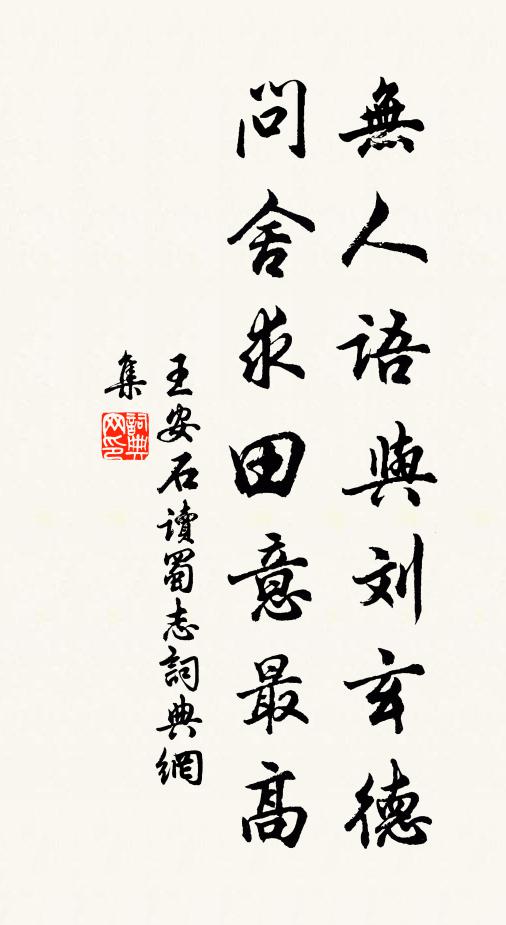 無人語與刘玄德
問舍求田意最高
王安石讀蜀志詞典網
集
詞典
网印